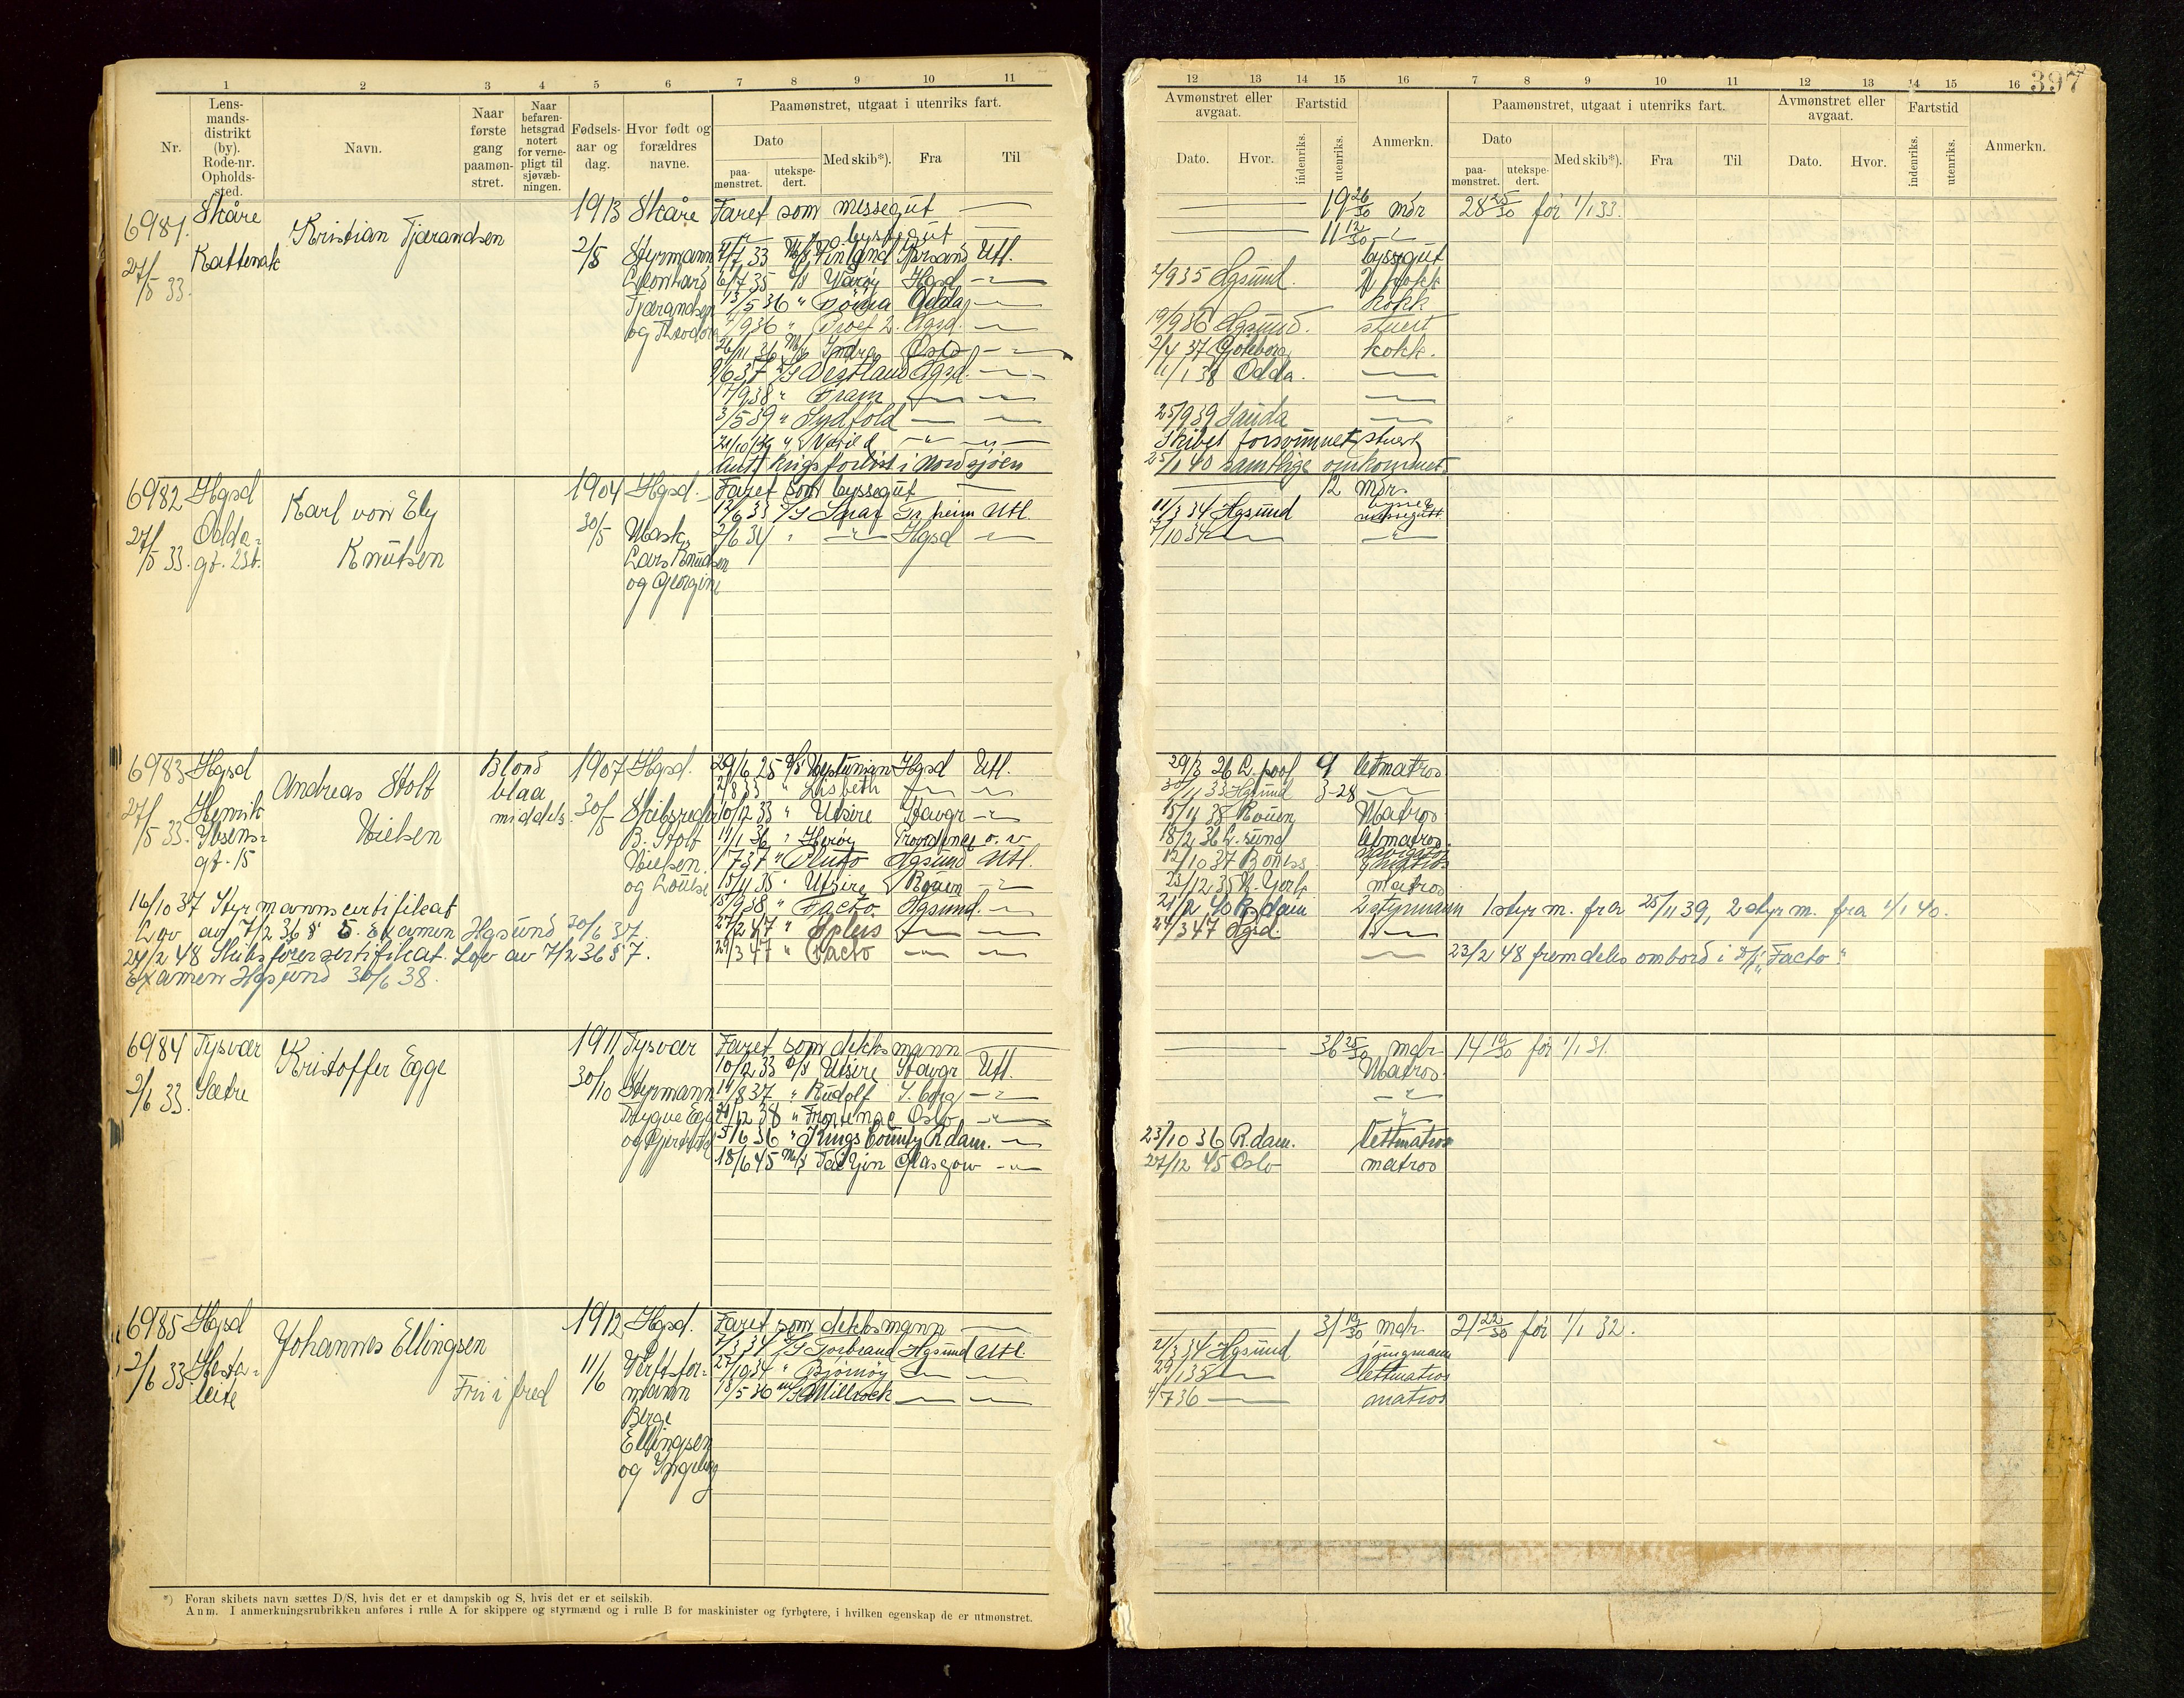 397
1 2 3 4 5 6 7 8 9 10 11
Nr.
Lens-
mands-
distrikt
(by).
Rode-nr.
Opholds-
sted.
Navn.
Naar
første
gang
paamøn-
stret.
Naar
befaren-
hetsgrad
notert
for verne-
pligt til
sjøvæb-
ningen.
Fødsels-
aar og
dag.
Hvor født og
forældres
navne.
Paamønstret, utgaat i utenriks fart.
Dato
paa-
mønstret.
utekspe-
dert.
Med skib*).
Fra
Til
12 13 14 15 16 7 8 9 10 11 12 13 14 15 16
Avmønstret eller
avgaat.
Dato. Hvor.
Fartstid
indenriks.
utenriks.
Anmerkn.
Paamønstret, utgaat i utenriks fart.
Dato
paa-
mønstret.
utekspe-
dert.
Med skib*).
Fra
Til
Avmønstret eller
avgaat.
Dato. Hvor.
Fartstid
indenriks.
utenriks.
Anmerkn.
6981. Skåre Kristian Tjærandsen 1913 Skåre Faret som messegut 19 26/30 mdr 28 25/30 før 1/1 33.
27/5 33. Kattenakk 2/8 Styrmann
byssegut 11 12/30
4/7 33 M/S Finland Krsand Utl. byssegut
6/7 35 D/S Varøy Hgsd 2/9 35 Hgsund. 2 kokk
Tjærandsen 13/5 36 " Odda kokk
og Theodora 4/9 36 " Hgsd. 19/9 36 Hgsund. stuert
26/11 36 M/S Indra Oslo 2/4 37 Gøteborg kokk.
9/6 37 D/S Vestland Hgsd. 11/1 38 Odda.
17/9 38 " Fram
3/5 39 " Sydfold 25/9 39 Sauda
21/10 39 " Varild Skibet forsvunnet stuert
Ant. krigsforlist i Nordsjøen 25/1 40 samtlige omkommet.
6982 Hgsd Karl von Ely Knutsen 1904 Hgsd. Faret som byssegut 12 mdr.
27/5 33. Odda-
gt. 23b. 30/5 Mask.
Lars Knudsen
og Georgine
12/6 33 D/S Snar Tr.heim Utl. 11/3 34 Hgsund
2/6 34 " Hgsd 7/10 34
6983 Hgsd Andreas Stolt Nielsen Blond 1907 Hgsd. 29/6 25 D/S Neptunian Hgsd Utl. 29/3 26 L.pool 9 letmatros
27/5 33. Henrik
Ibsens-
gt. 15
blaa
middels.
30/5 Skibsreder
B. Stolt
Nielsen.
og Louise
2/8 33 " Lisbeth 30/11 33 Hgsund 3-28
10/12 33 " Utsire Stavgr 15/11 35 Rouen Matros
14/1 36 " Herøy Providence o. v 18/2 36 L. sund letmatros
1/7 37 " Pluto Hgsund Utl. 12/10 37 Boness
15/11 35 " Utsire Rouen 23/12 35 N. York matros
15/9 38 " Facto Hgsund. 21/2 40 R.dam 2 styrmann 1 styrm. fra 25/11 39, 2 styrm. fra 1/1 40.
27/2 47 " 24/3 47 Hgsd.
29/3 47 " Facto 23/2 48 fremdeles ombord i D/S "Facto"
16/10 37 Styrmannscertifikat
Lov av 7/2 36 § 5. Examen Hgsund 30/6 37.
24/2 48 Skibsførercertifikat. Lov av 7/2 36 § 7.
Examen Hgsund 30/6 38.
6984 Tysvær Kristoffer Egge 1911 Tysvær Faret som dekksmann 36 25/30 mdr 14 19/30 før 1/1 31.
2/6 33. Sætre 30/10 Styrmann
Trygve Egge
og Gjertrud
10/12 33 D/S Utsire Stavgr Utl. Matros
14/8 37 " Rudolf S. borg
21/12 38 " Frontenac Oslo
5/6 36 " Kings County R.dam. 23/10 36 R.dam. lettmatros
18/6 45 M/S Tai Yin Glasgow 27/12 45 Oslo matros
6985 Hgsd Johannes Ellingsen 1912 Hgsd. Faret som dekksmann 31 19/30 mdr. 21 22/30 før 1/1 32.
2/6 33.
Fri i fred
11/6 Verftsfor-
mann
Berge
Ellingsen
og Ingeborg
2/3 34 D/S Torbrand Hgsund Utl. 21/3 34 Hgsund jungmann
27/10 34 " Bjørnøy 29/1 35 lettmatros
18/5 36 M/S Millrock 4/7 36 matros
*) Foran skibets navn sættes D/S, hvis det er et dampskib og S, hvis det er et seilskib.
Anm. I anmerkningsrubrikken anføres i rulle A for skippere og styrmænd og i rulle B for maskinister og fyrbøtere, i hvilken egenskap de er utmønstret.